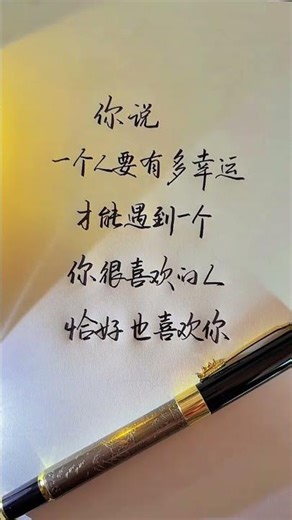 你说
一个人要有多幸运
才能遇到一个
你很喜欢的人
恰好也喜欢你